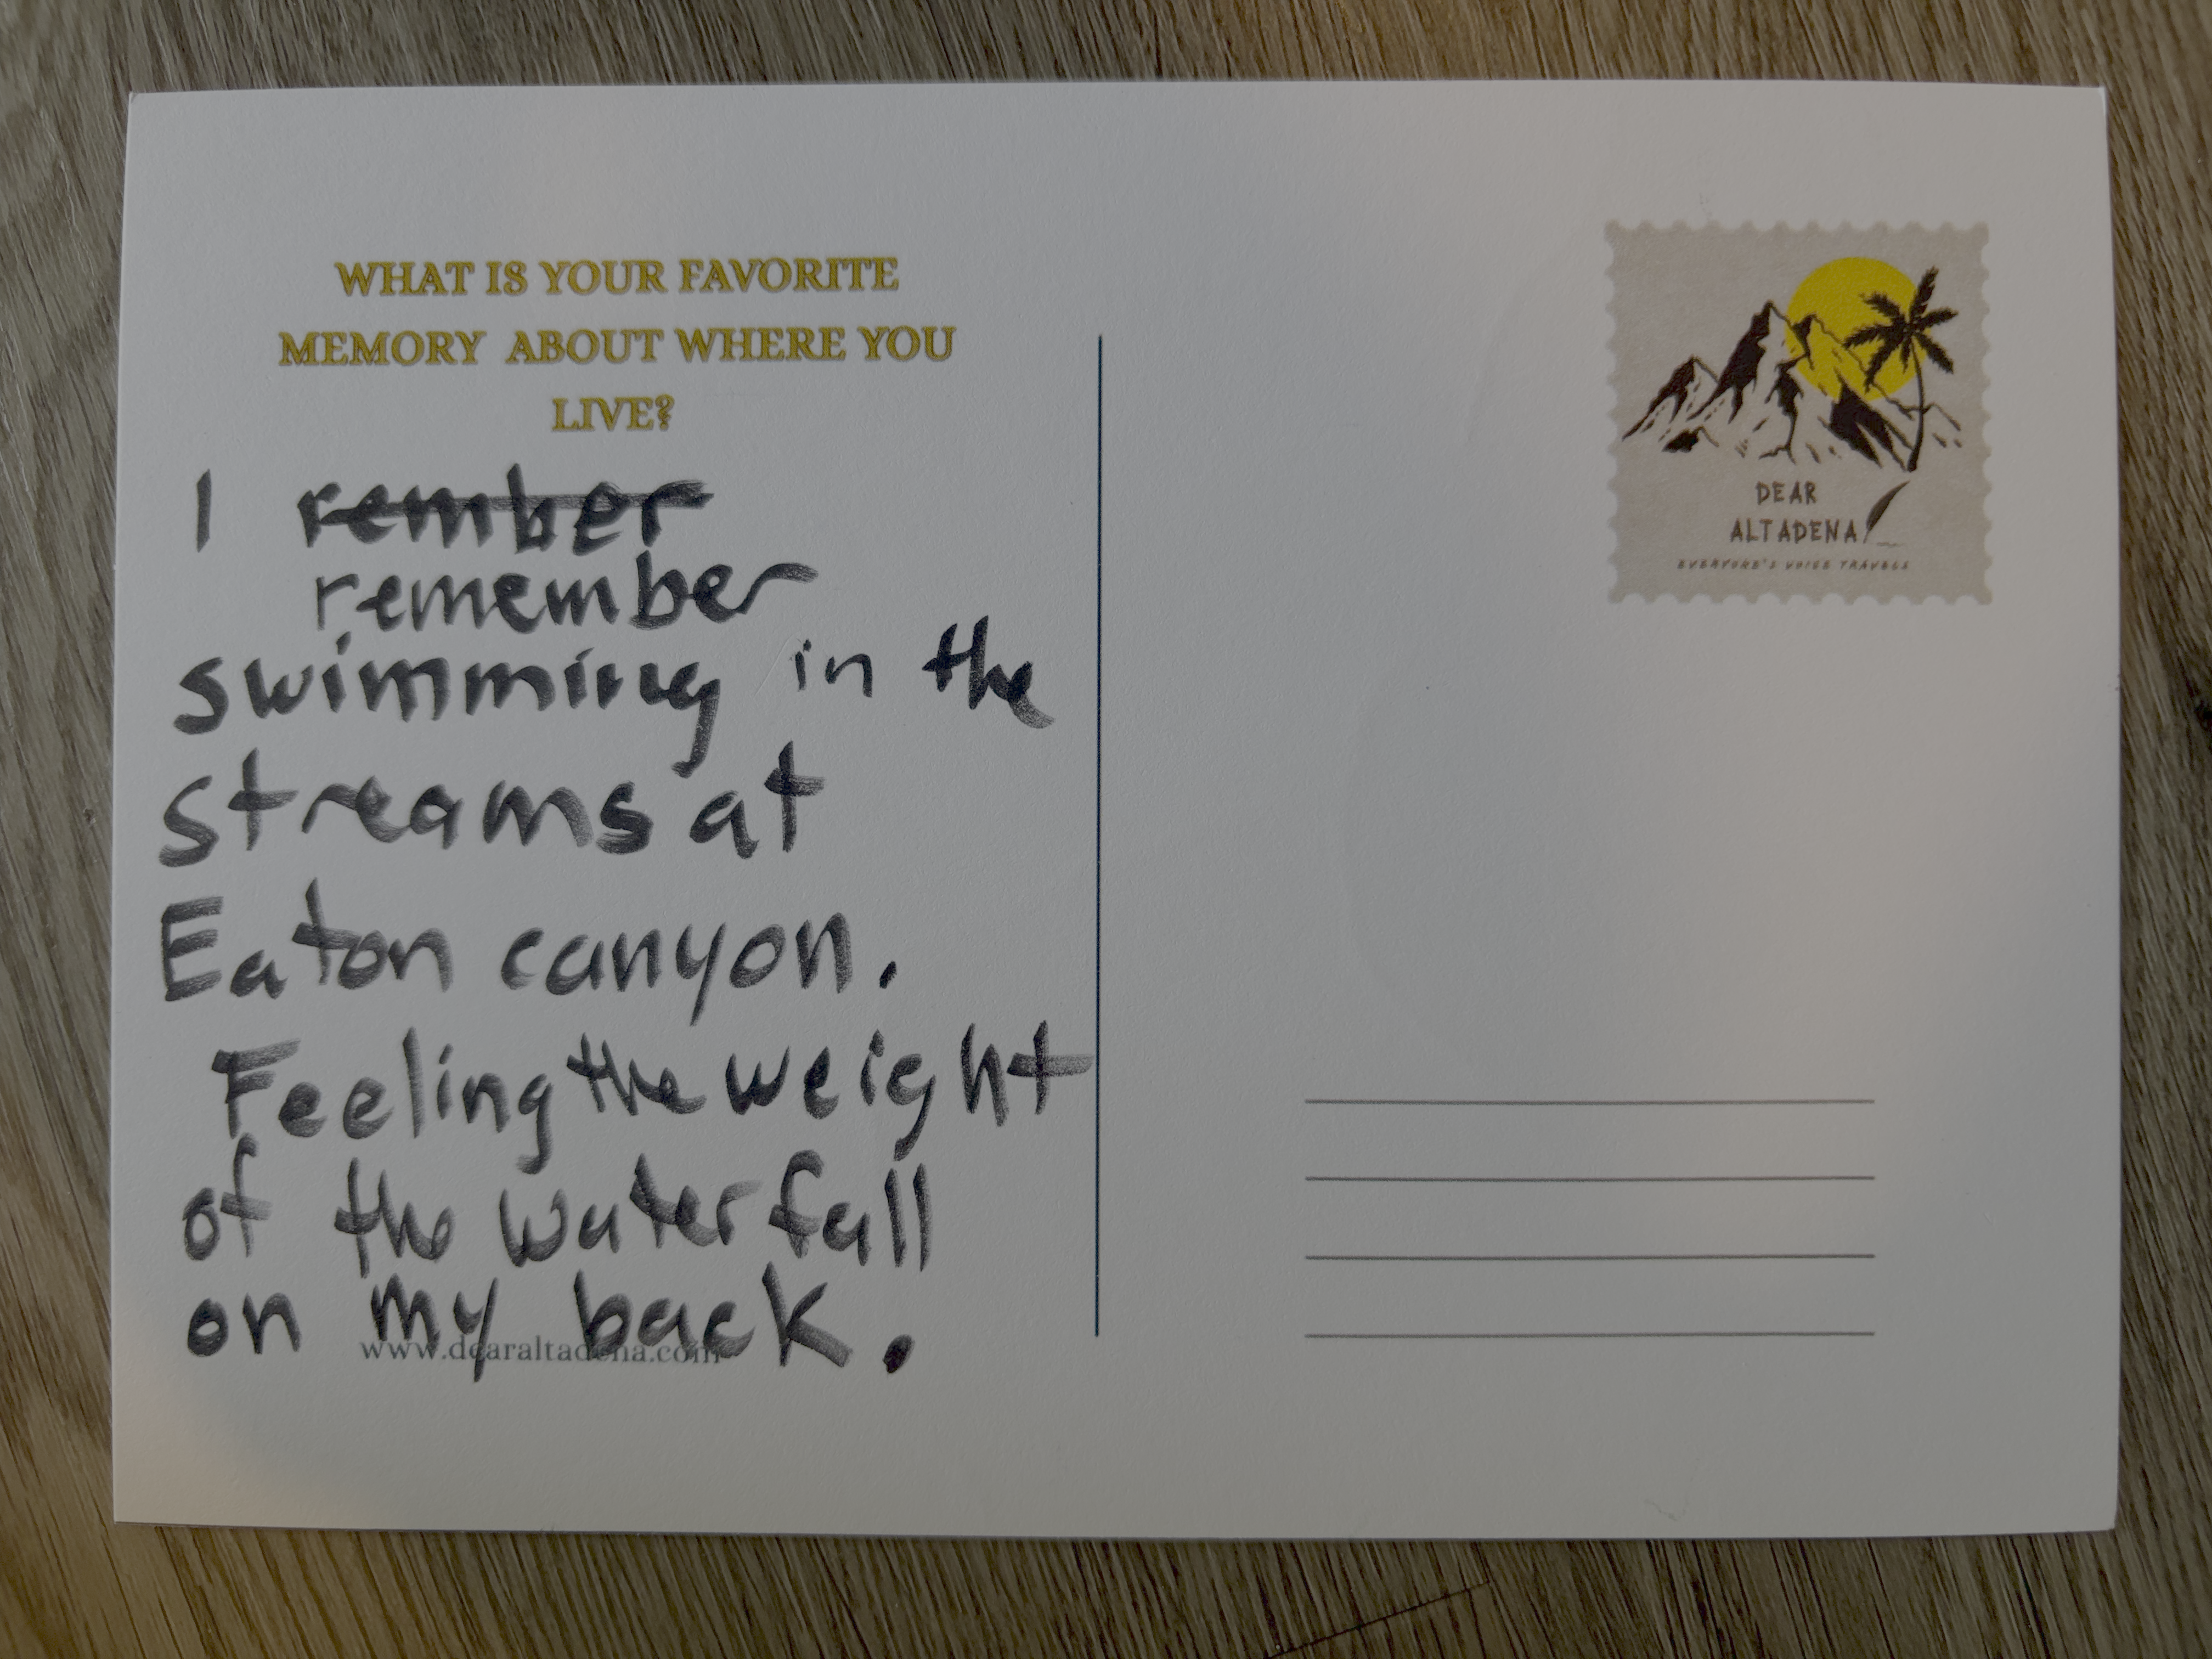 WHAT IS YOUR FAVORITE
MEMORY ABOUT WHERE YOU
LIVE?
I rember
remember
swimming in the
streams at
Eaton canyon.
Feeling the weight
of the waterfall
on my back.
www.dearaltadena.com
DEAR
ALTADENA
EVERYONE'S VOICE TRAVELS